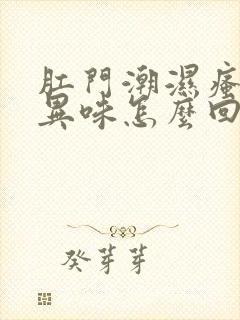 肛門潮濕瘙
異味怎麼回
癸芽芽